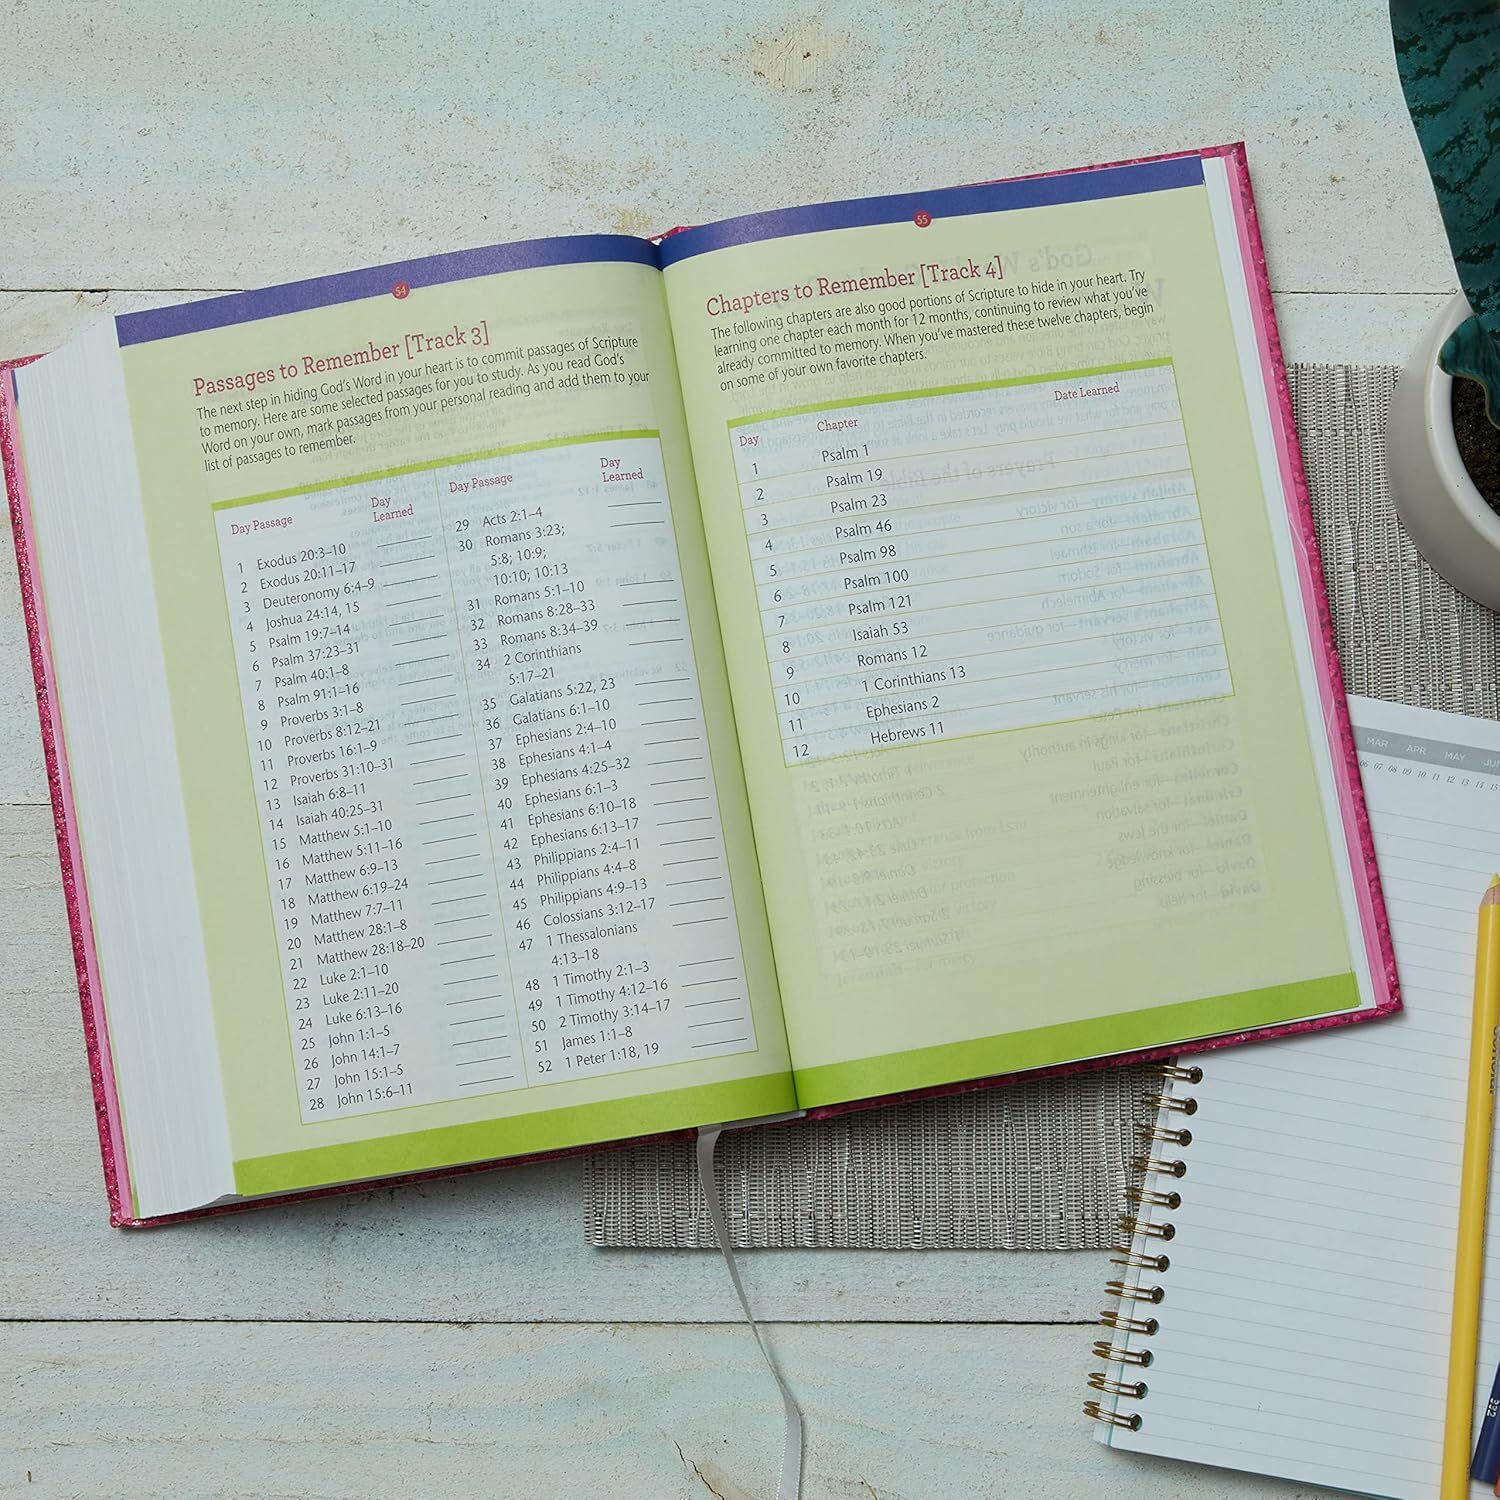 54
Passages to Remember [Track 3]
The next step in hiding God's Word in your heart is to commit passages of Scripture
to memory. Here are some selected passages for you to study. As you read God's
Word on your own, mark passages from your personal reading and add them to your
list of passages to remember.
Day Passage Day Learned
1 Exodus 20:3–10
2 Exodus 20:11–17
3 Deuteronomy 6:4–9
4 Joshua 24:14, 15
5 Psalm 19:7–14
6 Psalm 37:23–31
7 Psalm 40:1–8
8 Psalm 91:1–16
9 Proverbs 3:1–8
10 Proverbs 8:12–21
11 Proverbs 16:1–9
12 Proverbs 31:10–31
13 Isaiah 6:8–11
14 Isaiah 40:25–31
15 Matthew 5:1–10
16 Matthew 5:11–16
17 Matthew 6:9–13
18 Matthew 6:19–24
19 Matthew 7:7–11
20 Matthew 28:1–8
21 Matthew 28:18–20
22 Luke 2:1–10
23 Luke 2:11–20
24 Luke 6:13–16
25 John 1:1–5
26 John 14:1–7
27 John 15:1–5
28 John 15:6–11
Day Passage Day Learned
29 Acts 2:1–4
30 Romans 3:23;
5:8; 10:9;
10:10; 10:13
31 Romans 5:1–10
32 Romans 8:28–33
33 Romans 8:34–39
34 2 Corinthians
5:17–21
35 Galatians 5:22, 23
36 Galatians 6:1–10
37 Ephesians 2:4–10
38 Ephesians 4:1–4
39 Ephesians 4:25–32
40 Ephesians 6:1–3
41 Ephesians 6:10–18
42 Ephesians 6:13–17
43 Philippians 2:4–11
44 Philippians 4:4–8
45 Philippians 4:9–13
46 Colossians 3:12–17
47 1 Thessalonians
4:13–18
48 1 Timothy 2:1–3
49 1 Timothy 4:12–16
50 2 Timothy 3:14–17
51 James 1:1–8
52 1 Peter 1:18, 19
55
Chapters to Remember [Track 4]
The following chapters are also good portions of Scripture to hide in your heart. Try
learning one chapter each month for 12 months, continuing to review what you've
already committed to memory. When you've mastered these twelve chapters, begin
on some of your own favorite chapters.
Day Chapter Date Learned
1 Psalm 1
2 Psalm 19
3 Psalm 23
4 Psalm 46
5 Psalm 98
6 Psalm 100
7 Psalm 121
8 Isaiah 53
9 Romans 12
10 1 Corinthians 13
11 Ephesians 2
12 Hebrews 11
MAR APR MAY JUN
06 07 08 09 10 11 12 13 14 15